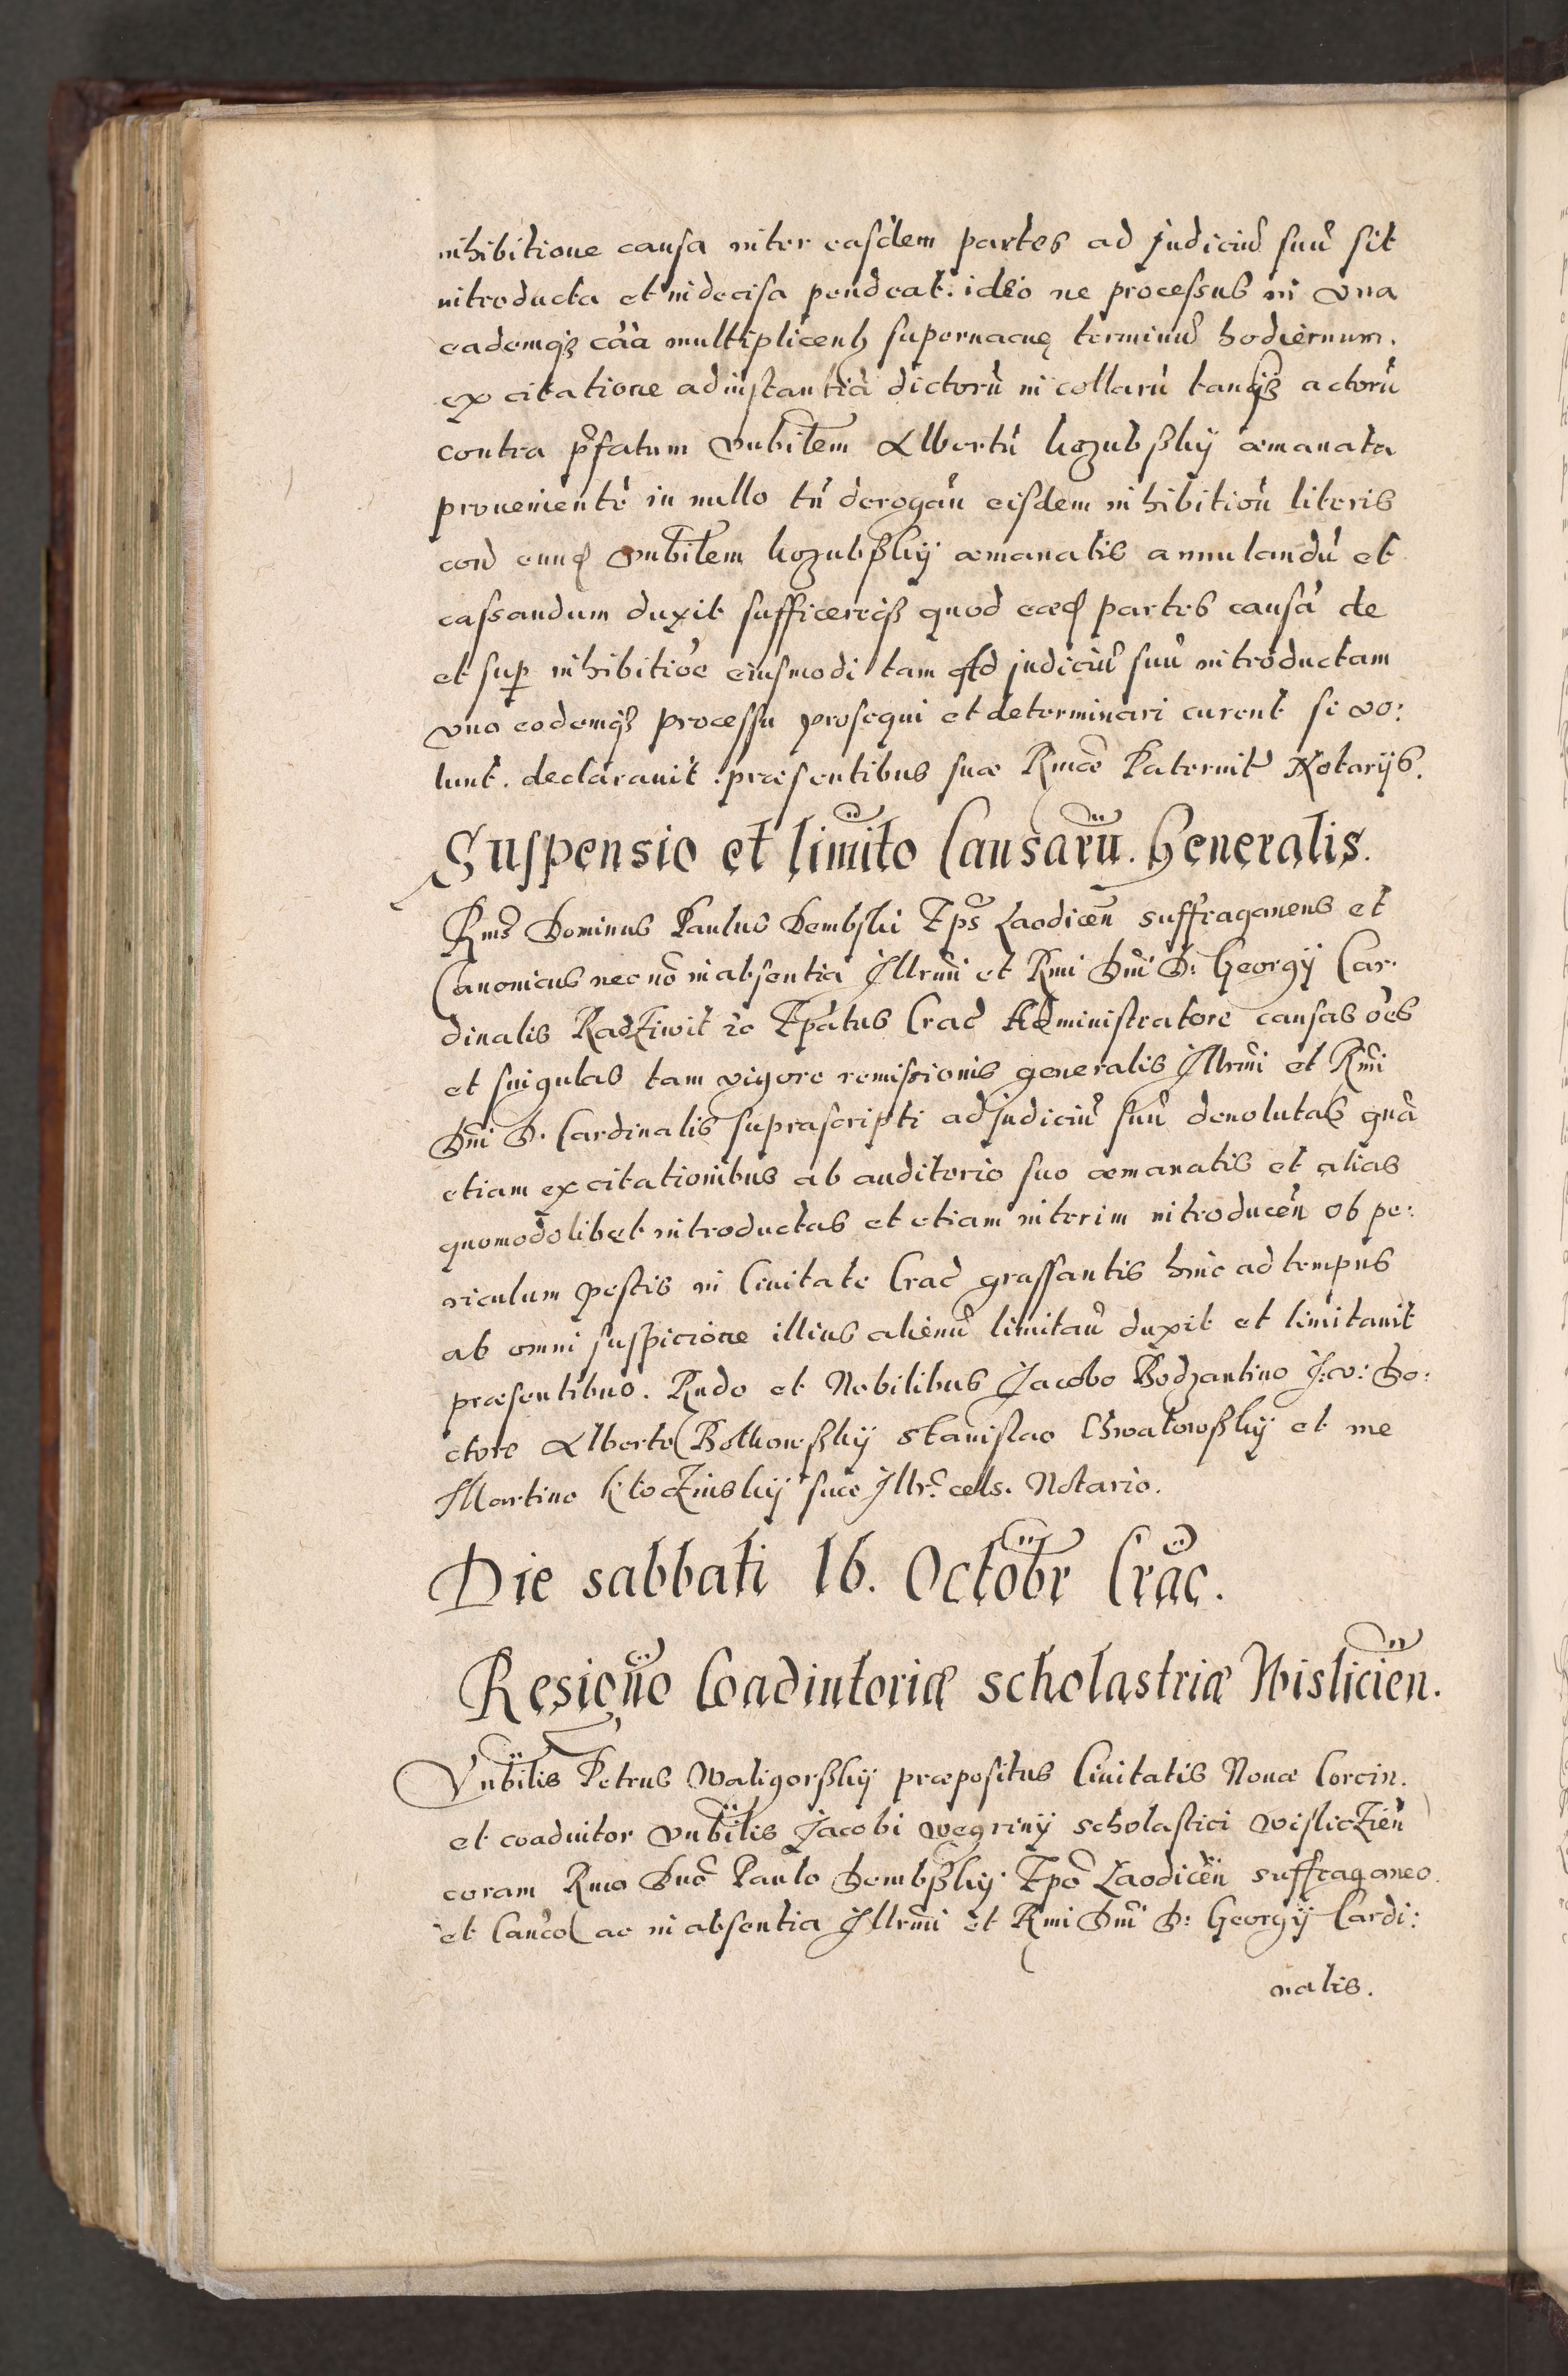 inhibitione causa inter easdem partes ad judiciũ suũ sit
introducta et indecisa pendeat. ideo ne processus in una
eademqꝫ cãa multiplicent supervacuę terminũ hodiernum.
ex citatione ad instantiã dictorũ incollarũ tanqꝫ actorũ
contra pͤfatum vnbilem Albertũ kozubßkÿ æmanata
provenientẽ in nullo tñ derogañ eisdem inhibitioñ literis
con eund vnbilem kozubßkÿ æmanatis annulandũ et
cassandum duxit sufficereqꝫ quod eæd partes causã de
et sup inhibitiõe eiusmodi tam ad judiciũ suũ introductam
vno eodemqꝫ processu prosequi et determinari curent si vo:
lunt. declaravit. præsentibus suæ Rmæ Paternit Notarijs.
Suspensio et limito Causarũ. Generalis.
Rms Dominus Paulus Dembski Eps Laodiceñ suffraganeus et
Canonicus nec nõ in absentia Illrmi et Rmi Dni D: Georgÿ Car-
dinalis Radziwil ꝛc Epatus Crac Administratore causas oẽs
et singulas tam vigore remissionis generalis Illrmi et Rmi
Dni D. Cardinalis suprascripti ad judiciũ suũ devolutas quã
etiam ex citationibus ab auditorio suo æmanatis et alias
quomodolibet introductas et etiam interim introduceñ ob pe:
riculum pestis in Civitate Crac grassantis hinc ad tempus
ab omni suspicione illius alienũ limitañ duxit et limitavit
præsentibus. Rndo et Nobilibus Jacobo Bodzantino J:v: Do:
ctore Alberto Bolkoweßkÿ Stanislao Chwalowßkÿ et me
Martino Kloczinskÿ suæ Illr. cels. Notario.
Die sabbati 16. Octobr Crac.
Resigno Coadiutoriæ scholastriæ Wisliciẽn.
Vnbilis Petrus Waligorßkÿ præpositus Civitatis Novæ Corcin.
et coadiutor vnbilis Jacobi wegrinÿ scholastici wislicziẽn
coram Rmo Dno Paulo Dembßkÿ Epo Laodiceñ suffraganeo
et Canco ac in absentia Illrmi et Rmi Dni D: Georgÿ Cardi:
nalis.